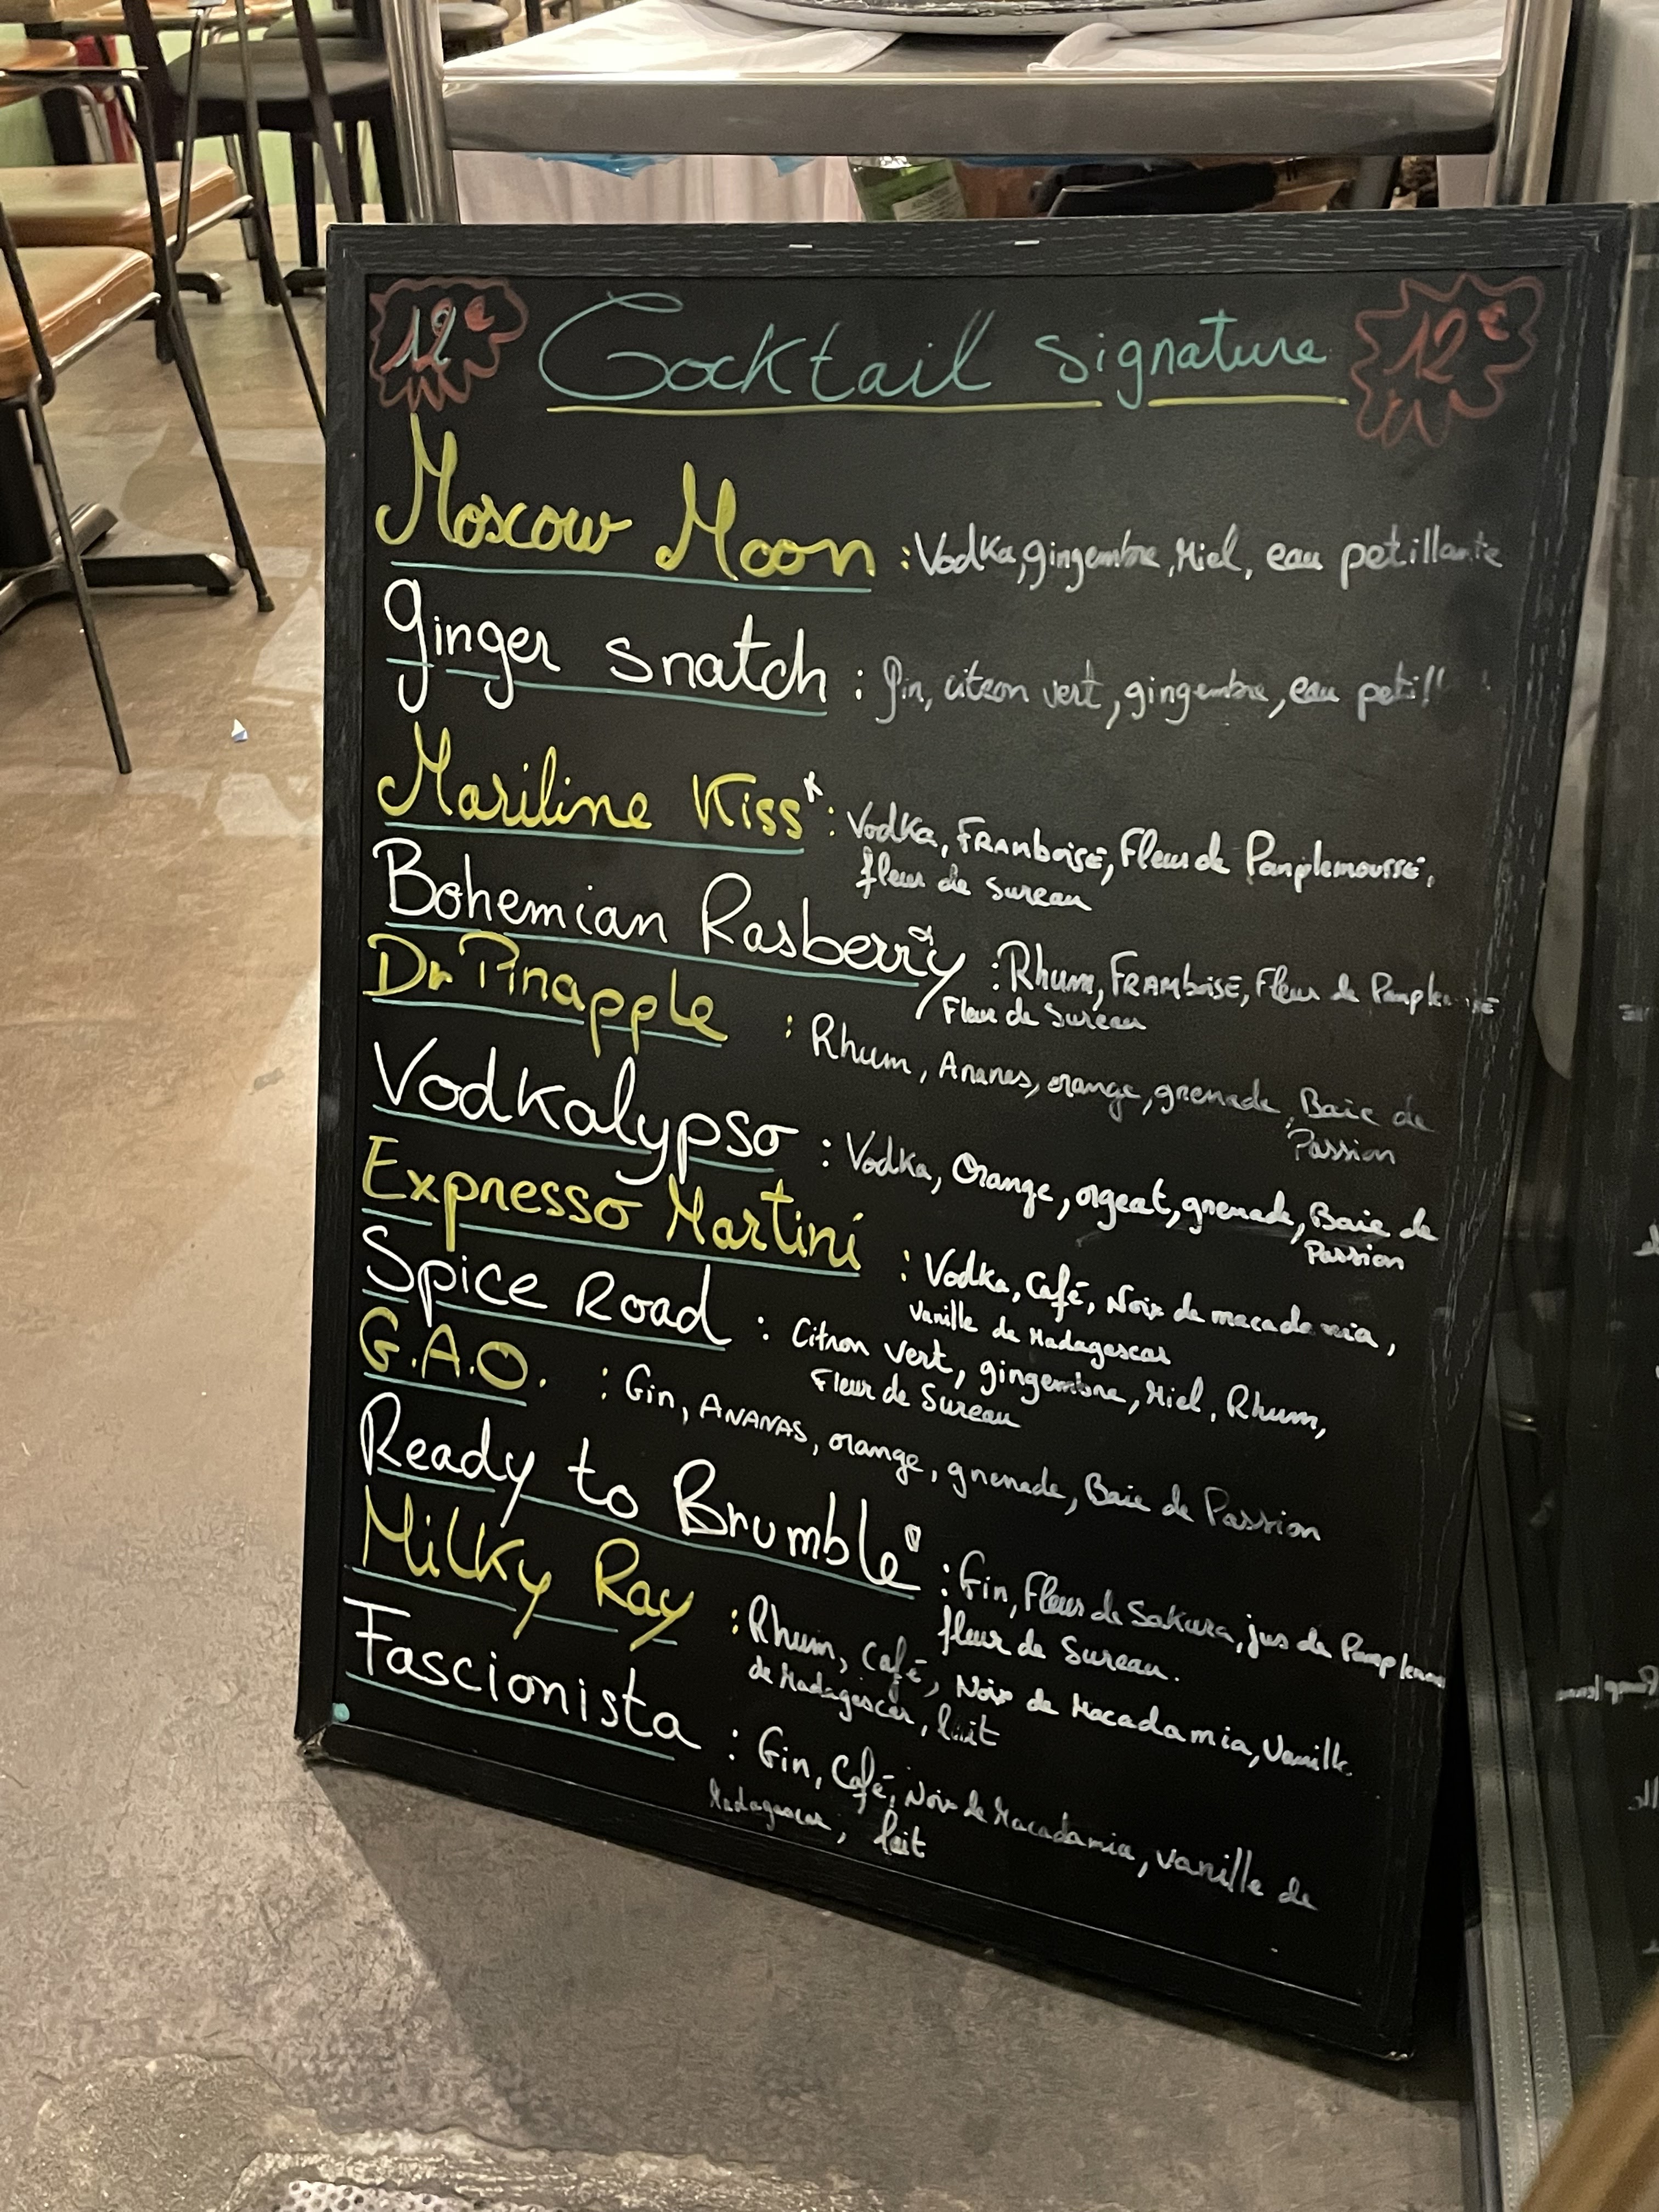 12€ Cocktail Signature 12€
Moscow Moon : Vodka, gingembre, Miel, eau petillante
Ginger Snatch : Gin, citron vert, gingembre, eau petill
Mariline Kiss* : Vodka, FRAMBOISE, Fleur de Pamplemousse,
fleur de Sureau
Bohemian Rasberry : Rhum, FRAMBOISE, Fleur de
Fleur de Sureau
Dr Pinapple : Rhum, Ananas, orange, grenade, Baie de
Passion
Vodkalypso : Vodka, Orange, orgeat, grenade, Baie de
Passion
Expresso Martini : Vodka, Café, Noix de macadamia,
Vanille de Madagascar
Spice Road : Citron vert, gingembre, Miel, Rhum,
Fleur de Sureau
G.A.O. : Gin, ANANAS, orange, grenade, Baie de Passion
Ready to Brumble : Gin, Fleur de Sakura, jus de
fleur de Sureau.
Milky Ray : Rhum, Café, Noix de Macadamia, Vanille
de Madagascar, lait
Fascionista : Gin, Café, Noix de Macadamia, vanille de
Madagascar, lait